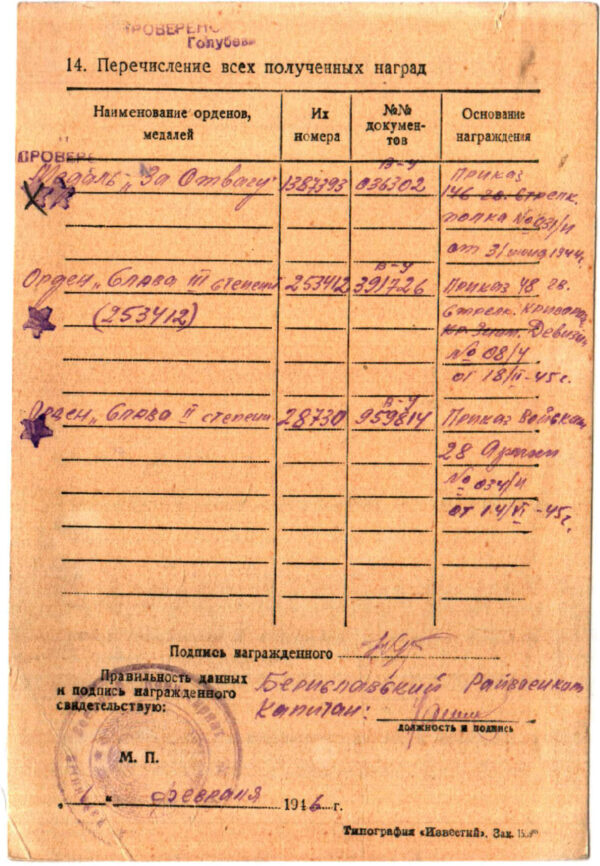 ПРОВЕРЕНО
Голубев
14. Перечисление всех полученных наград
Наименование орденов, медалей
Их номера
№№ документов
Основание награждения
ПРОВЕРЕ
Медаль „За Отвагу" 1387393 В-У 036302 Приказ
146 гв. стрелк.
полка № 031/Н
от 31 1944г.
Орден „Слава III степени 253412 В-У 391726 Приказ 48 гв.
(253412) стрелк.
Дивизии
№ 08/Н
от 18/II-45г.
Орден „Слава II степени 28730 В-У 959814 Приказ Войскам
28 Армии
№ 034/Н
от 14/VI-45г.
Подпись награжденного
Правильность данных
и подпись награжденного
свидетельствую:
Бериславский Райвоенком
Капитан:
должность и подпись
М. П.
„1" февраля 1946 г.
Типография «Известий». Зак.